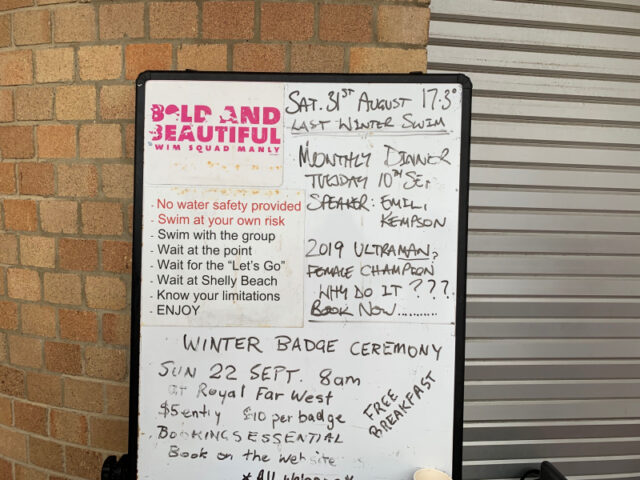 BOLD AND
BEAUTIFUL
SWIM SQUAD MANLY
- No water safety provided
- Swim at your own risk
- Swim with the group
- Wait at the point
- Wait for the “Let's Go”
- Wait at Shelly Beach
- Know your limitations
- ENJOY
SAT. 31ST AUGUST 17.3°
LAST WINTER SWIM
MONTHLY DINNER
TUESDAY 10TH SE
SPEAKER: EMIL
KEMPSON
2019 ULTRAMAN,
FEMALE CHAMPION
WHY DO IT ???.
BOOK NOW.........
WINTER BADGE CEREMONY
SUN 22 SEPT. 8am
at Royal Far West
$5 entry $10 per badge
BOOKINGS ESSENTIAL
Book on the Website
FREE
BREAKFAST
* All